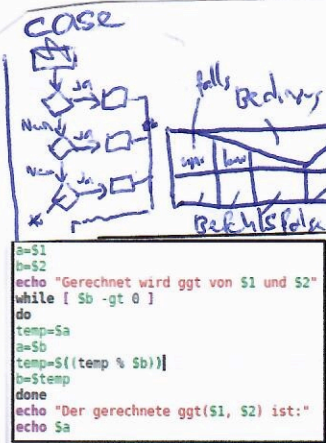 case
falls
Bedingung
ja
Nein
ja
Nein
ja
a=$1
b=$2
echo "Gerechnet wird ggt von $1 und $2"
while [ $b -gt 0 ]
do
temp=$a
a=$b
temp=$((temp % $b))
b=$temp
done
echo "Der gerechnete ggt($1, $2) ist:"
echo $a